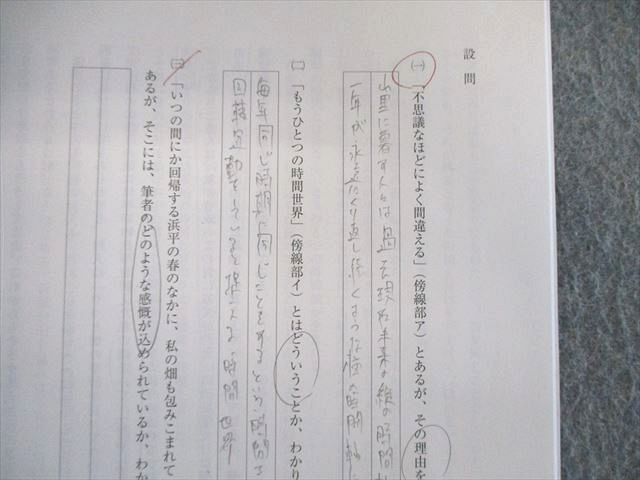 設問
㈠「不思議なほどによく間違える」（傍線部ア）とあるが、その理由を
山里に暮す人々は過去現在未来の縦の時間
一年が永遠にくり返し続くような横の時間軸
㈡「もうひとつの時間世界」（傍線部イ）とはどういうことか、わかり
毎年同じ時期に同じことをするという、時間
回転運動をしていると捉える時間世界
㈢「いつの間にか回帰する浜平の春のなかに、私の畑も包みこまれて
あるが、そこには、筆者のどのような感慨が込められているか、わか